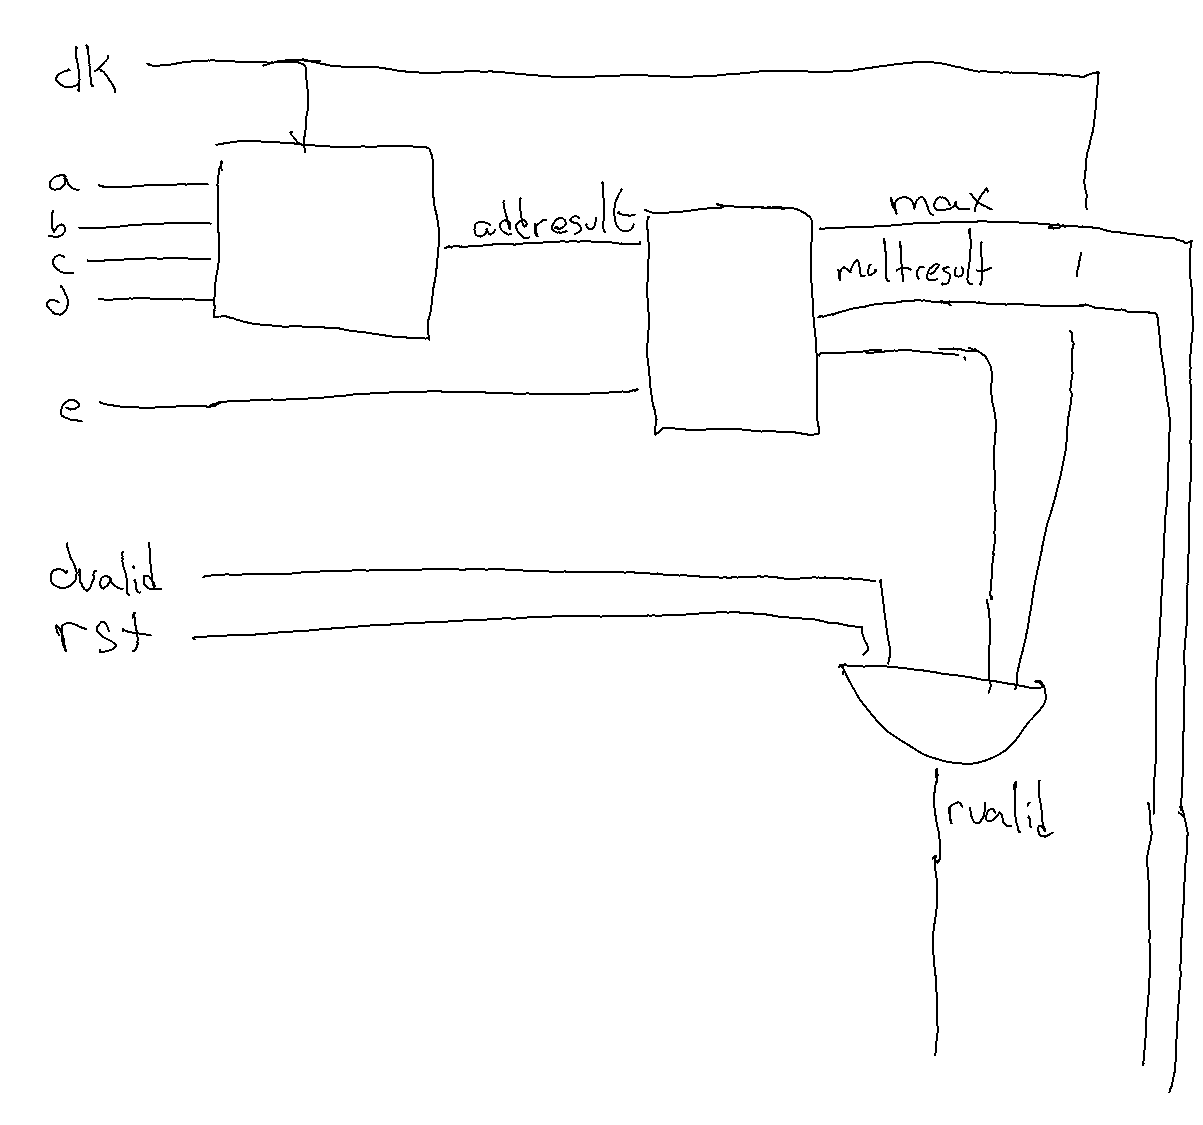 clk
a
b
c
d
addresult
max
multresult
e
dvalid
rst
rvalid